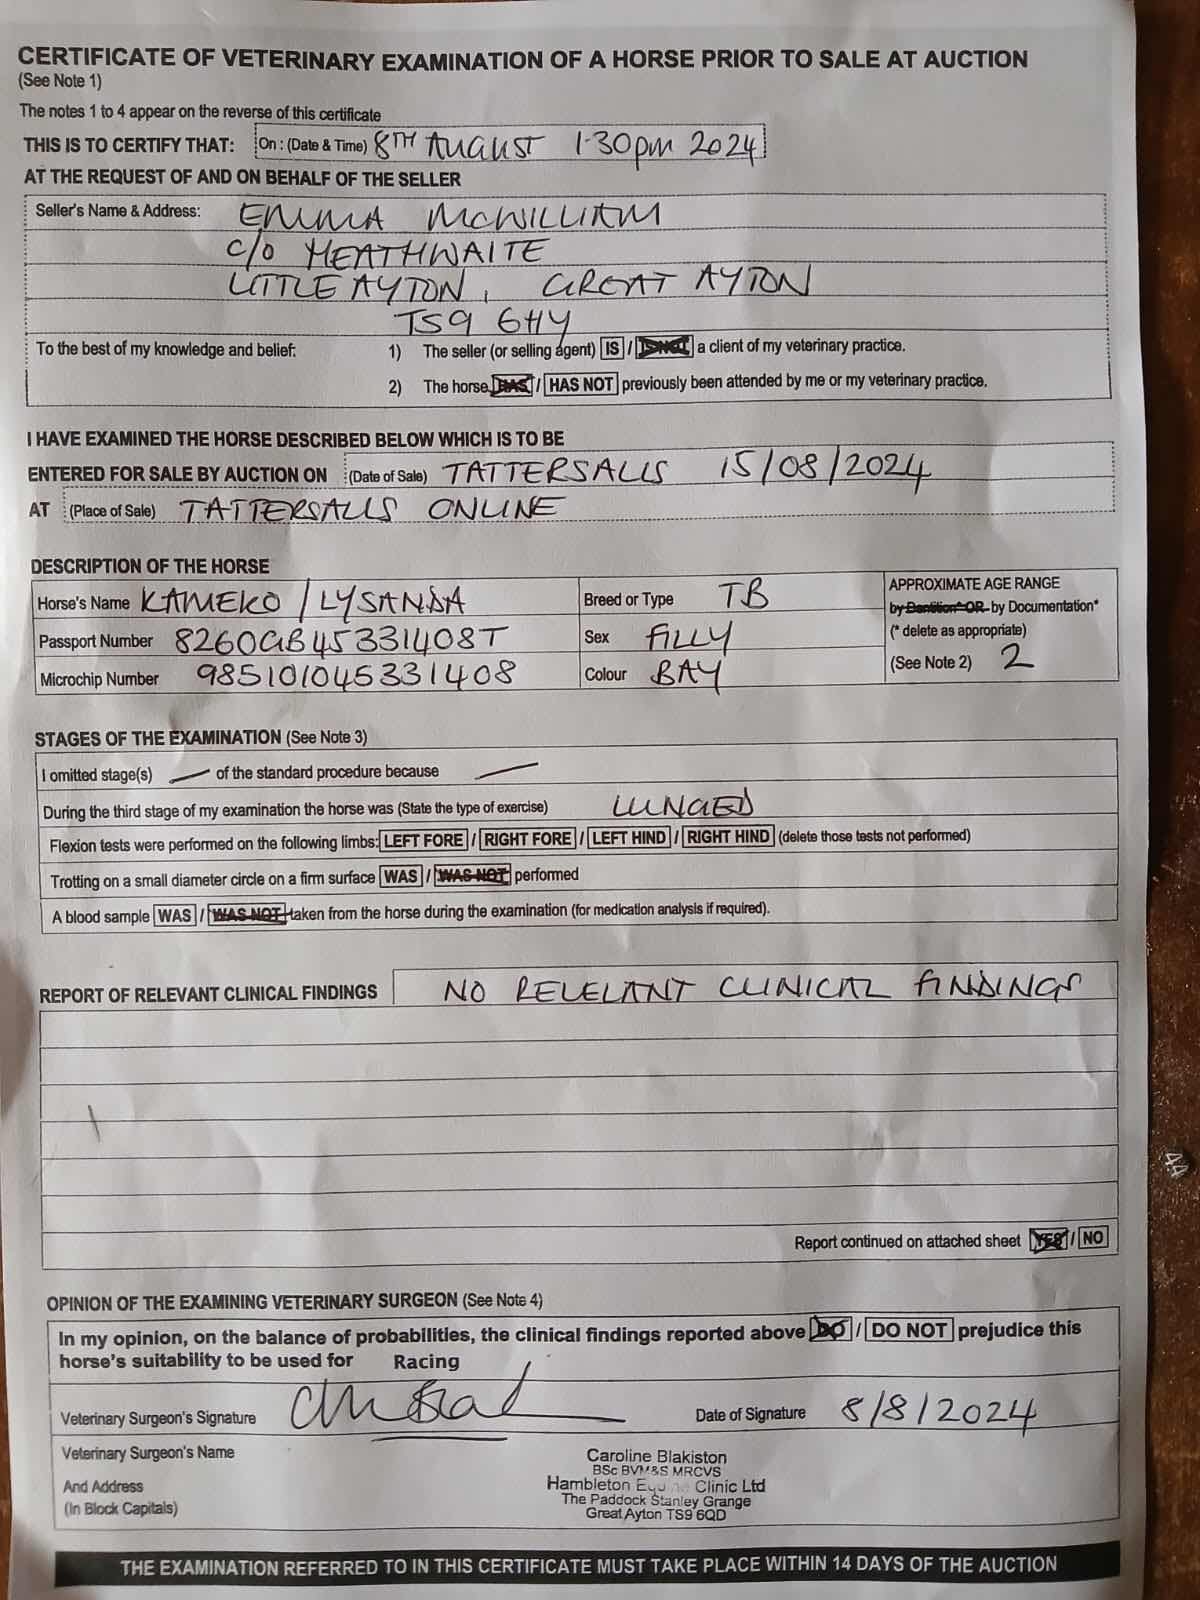 CERTIFICATE OF VETERINARY EXAMINATION OF A HORSE PRIOR TO SALE AT AUCTION
(See Note 1)
The notes 1 to 4 appear on the reverse of this certificate
THIS IS TO CERTIFY THAT: On : (Date & Time) 8TH AUGUST 1·30pm 2024
AT THE REQUEST OF AND ON BEHALF OF THE SELLER
Seller's Name & Address: EMMA MCWILLIAM
C/O HEATHWAITE
LITTLE AYTON, GREAT AYTON
TS9 6HY
To the best of my knowledge and belief: 1) The seller (or selling agent) IS / IS NOT a client of my veterinary practice.
2) The horse HAS / HAS NOT previously been attended by me or my veterinary practice.
I HAVE EXAMINED THE HORSE DESCRIBED BELOW WHICH IS TO BE
ENTERED FOR SALE BY AUCTION ON (Date of Sale) TATTERSALLS 15/08/2024
AT (Place of Sale) TATTERSALLS ONLINE
DESCRIPTION OF THE HORSE
Horse's Name KAMEKO / LYSANDA Breed or Type TB APPROXIMATE AGE RANGE
by Dentition* OR by Documentation*
Passport Number 8260GB45331408T Sex FILLY (* delete as appropriate)
Microchip Number 985101045331408 Colour BAY (See Note 2) 2
STAGES OF THE EXAMINATION (See Note 3)
I omitted stage(s) — of the standard procedure because —
During the third stage of my examination the horse was (State the type of exercise) LUNGED
Flexion tests were performed on the following limbs: LEFT FORE / RIGHT FORE / LEFT HIND / RIGHT HIND (delete those tests not performed)
Trotting on a small diameter circle on a firm surface WAS / WAS NOT performed
A blood sample WAS / WAS NOT taken from the horse during the examination (for medication analysis if required).
REPORT OF RELEVANT CLINICAL FINDINGS NO RELELANT CLINICAL FINDINGS
Report continued on attached sheet YES / NO
OPINION OF THE EXAMINING VETERINARY SURGEON (See Note 4)
In my opinion, on the balance of probabilities, the clinical findings reported above DO / DO NOT prejudice this
horse's suitability to be used for Racing
Veterinary Surgeon's Signature Date of Signature 8/8/2024
Veterinary Surgeon's Name Caroline Blakiston
BSc BVM&S MRCVS
And Address Hambleton Equine Clinic Ltd
(In Block Capitals) The Paddock Stanley Grange
Great Ayton TS9 6QD
THE EXAMINATION REFERRED TO IN THIS CERTIFICATE MUST TAKE PLACE WITHIN 14 DAYS OF THE AUCTION